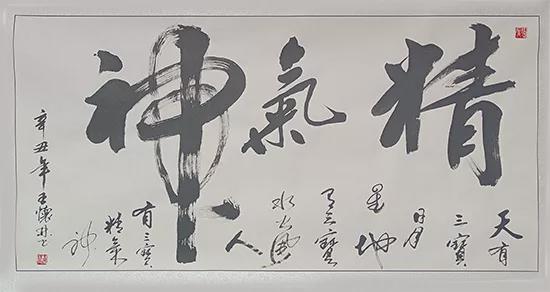 精氣神
天有
三寶
日月
星地
有三寶
水火風
人
有三寶
精氣
神
辛丑年
王懷